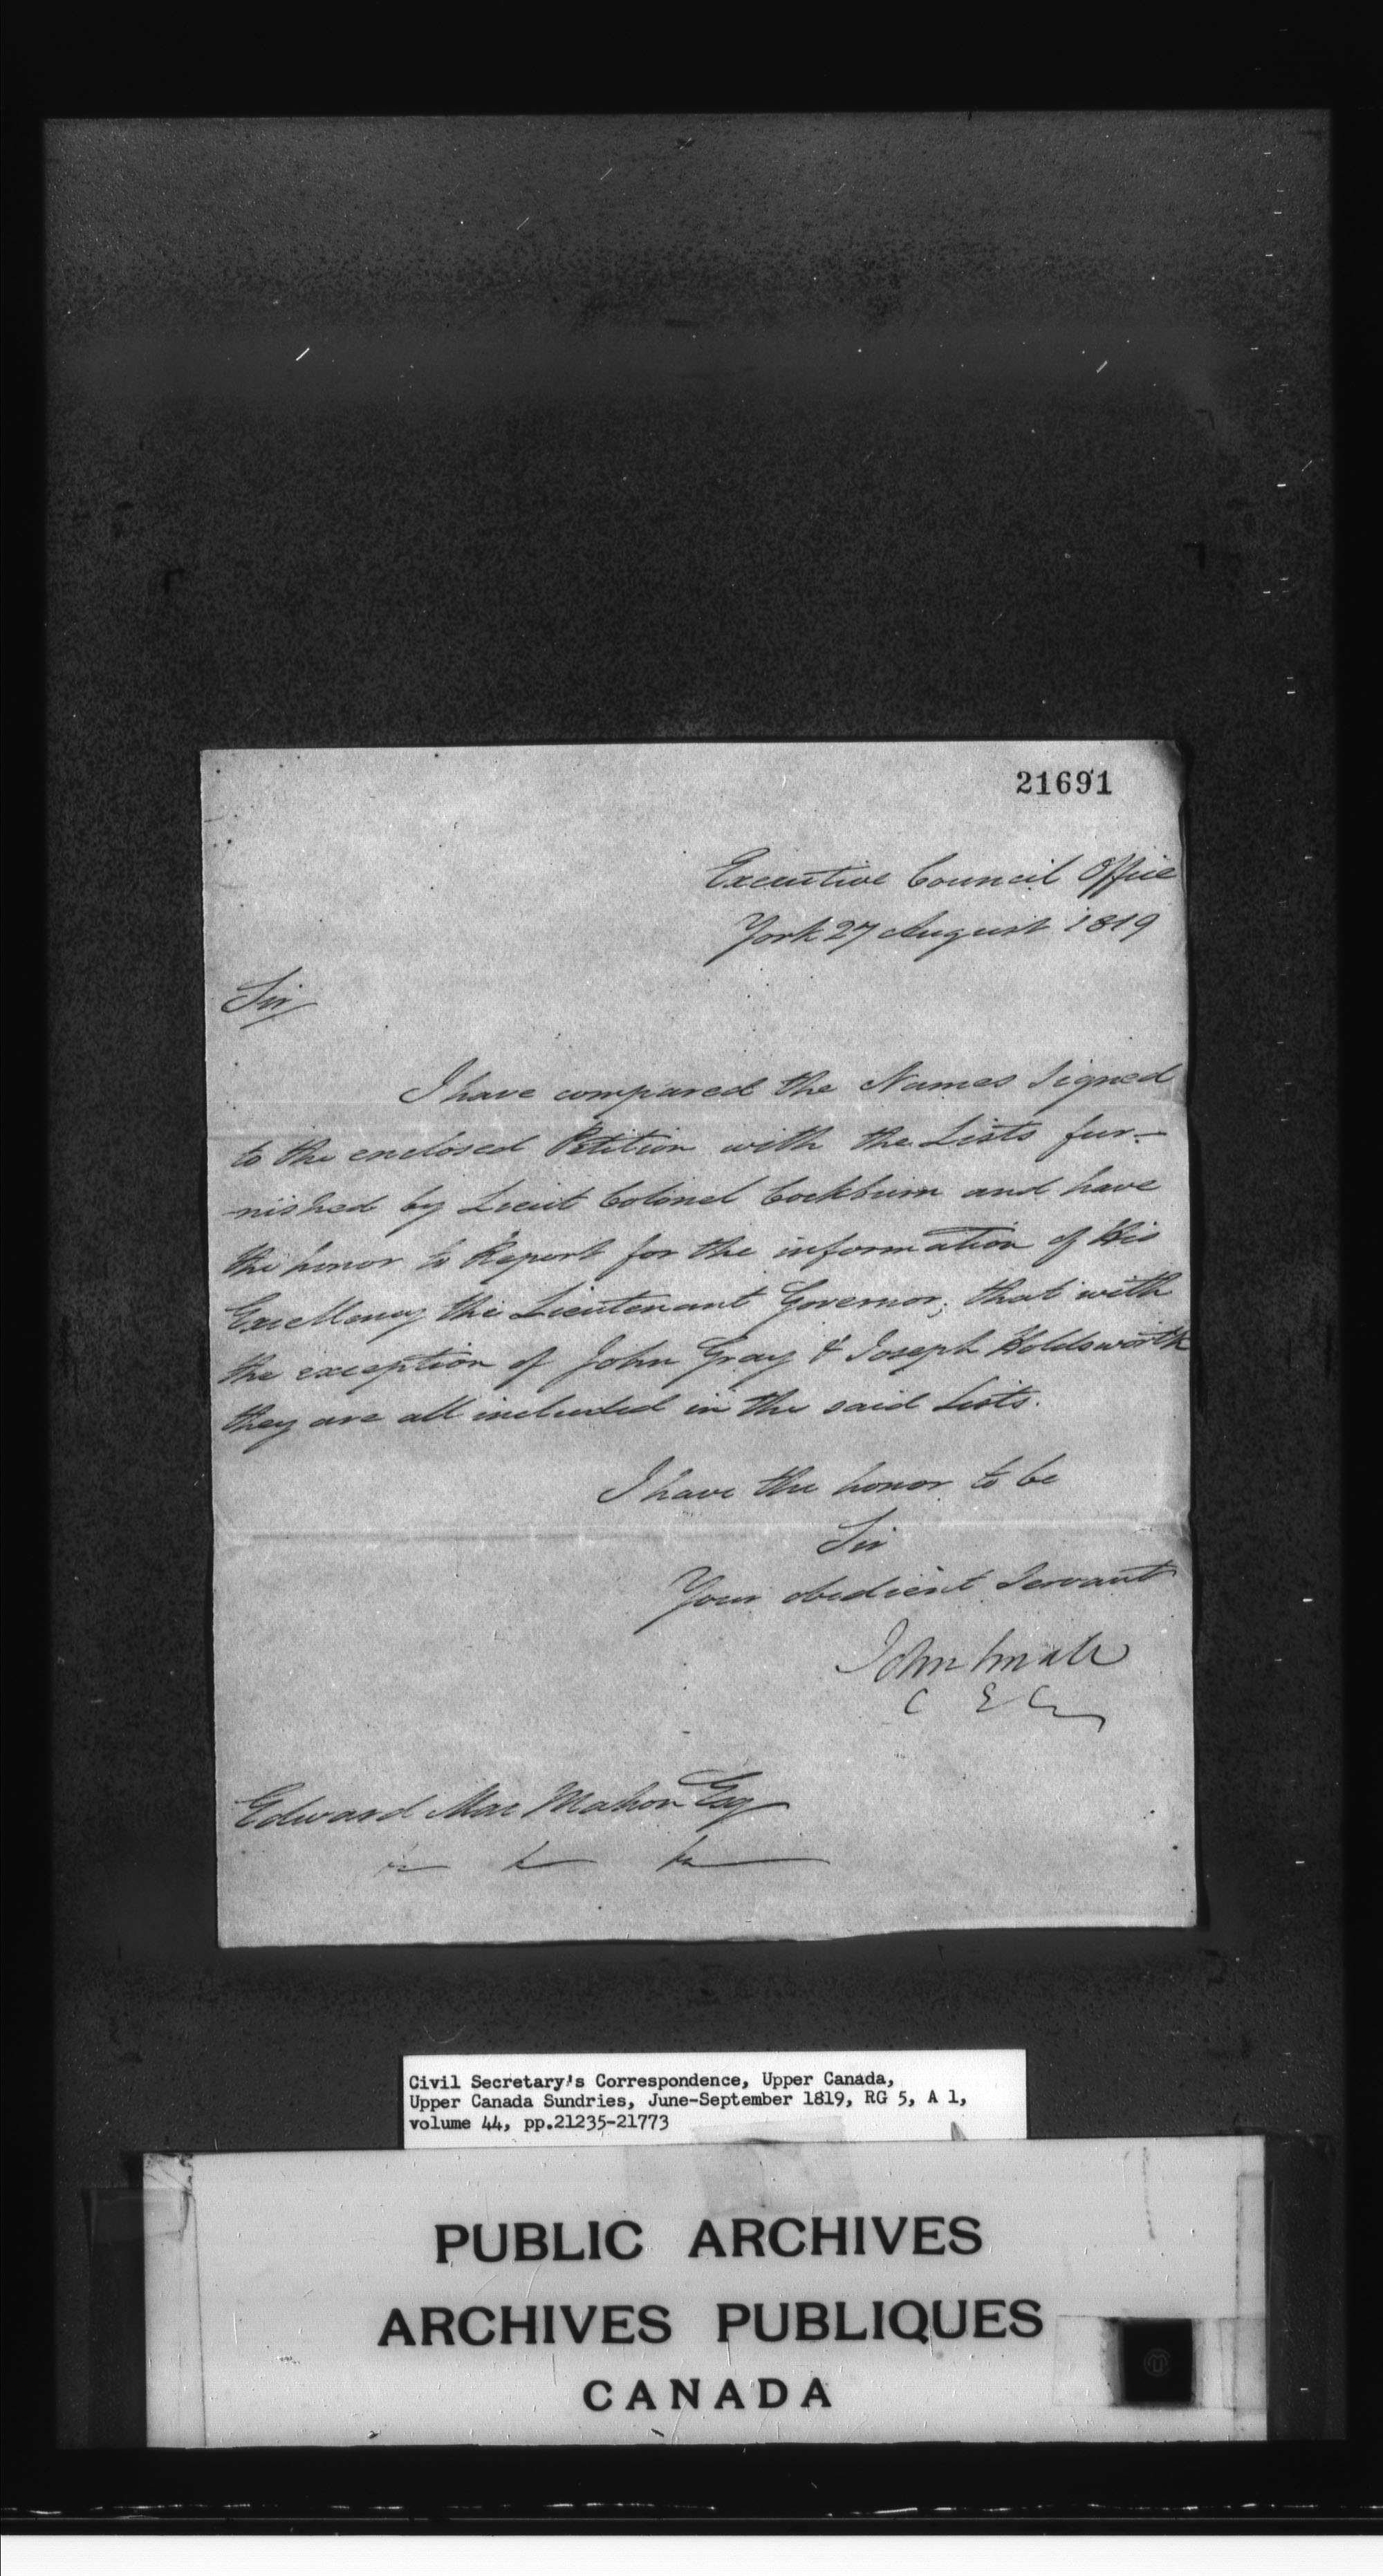 21691
Executive Council Office
York 27 August 1819
Sir
I have compared the Names signed
to the enclosed Petition with the Lists fur-
nished by Lieut Colonel Cockburn and have
the honor to Report for the information of His
Excellency the Lieutenant Governor; that with
the exception of John Gray & Joseph Holdsworth
they are all included in the said Lists.
I have the honor to be
Sir
Your obedient Servant
John Small
C E C
Edward Mac Mahon Esq
Civil Secretary's Correspondence, Upper Canada,
Upper Canada Sundries, June-September 1819, RG 5, A 1,
volume 44, pp.21235-21773
PUBLIC ARCHIVES
ARCHIVES PUBLIQUES
CANADA